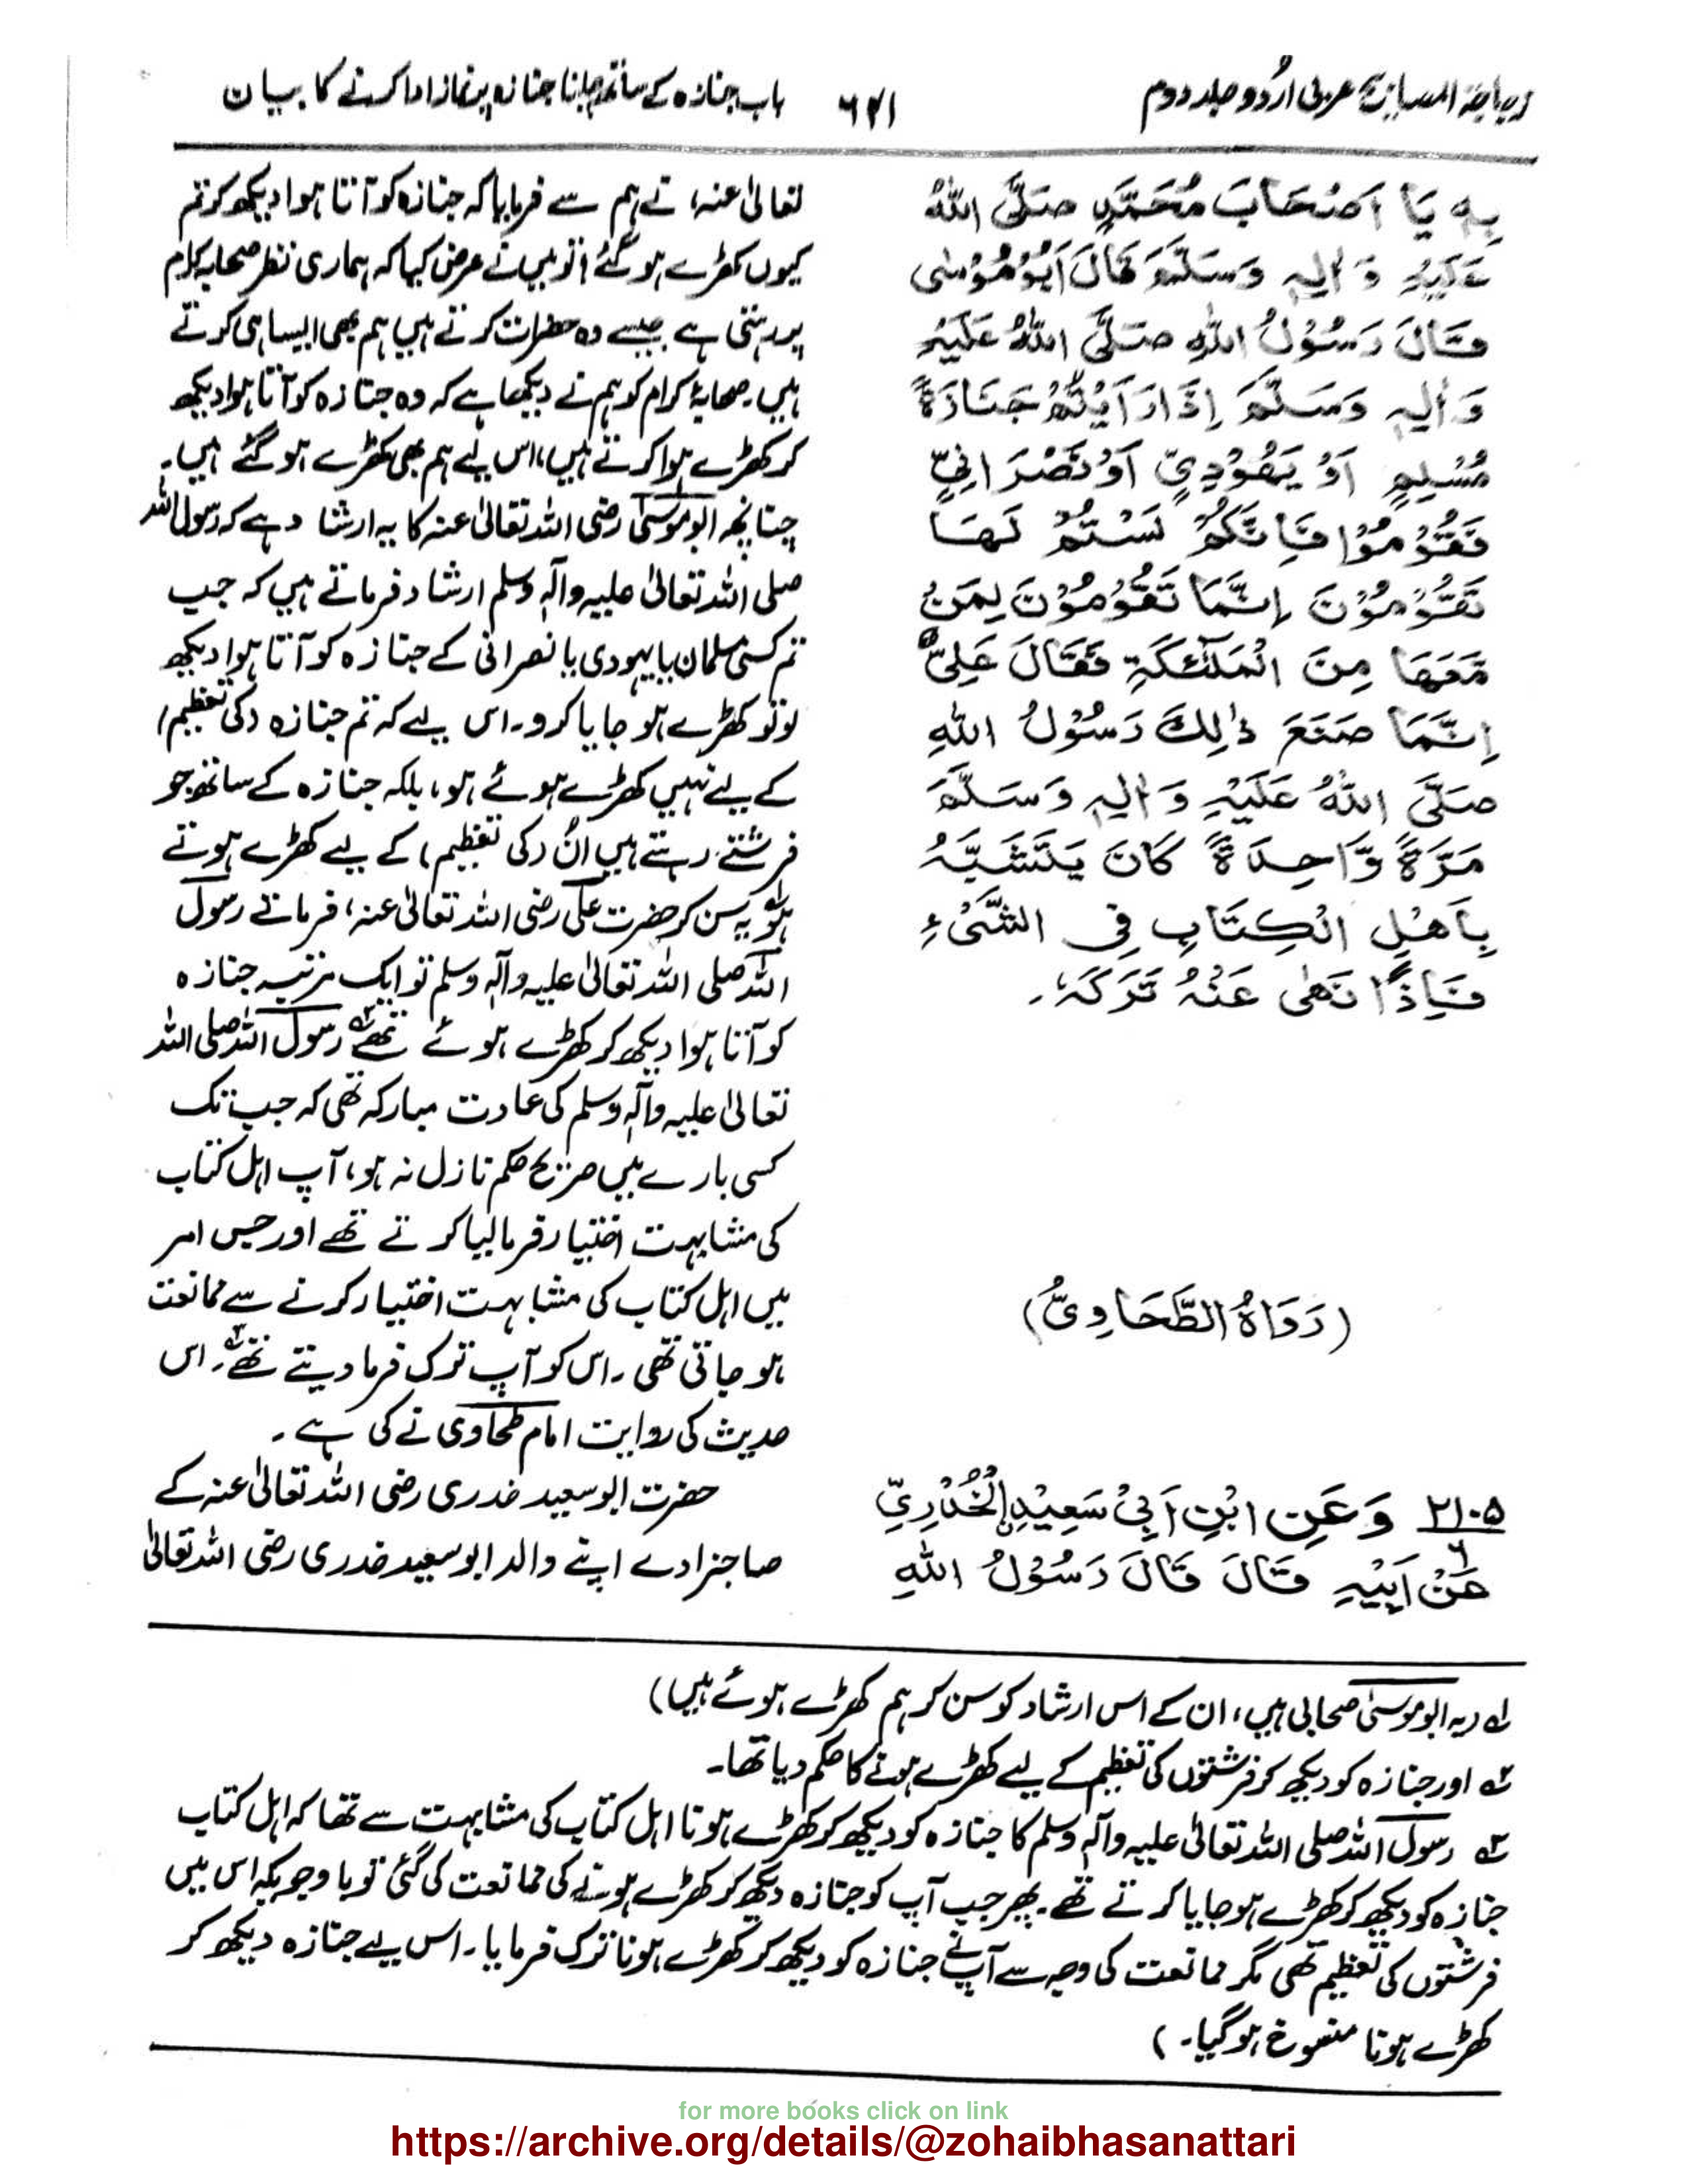 زجاجۃ المصابیح عربی اُردو جلد دوم
۶۲۱
باب جنازہ کے ساتھ چلنا جنازہ پر نماز ادا کرنے کا بیان
بِهٖ يَا اَصْحَابَ مُحَمَّدٍ صَلَّى اللهُ
عَلَيْهِ وَ اٰلِهٖ وَسَلَّمَ قَالَ اَبُوْ مُوْسٰى
قَالَ رَسُوْلُ اللهِ صَلَّى اللهُ عَلَيْهِ
وَ اٰلِهٖ وَسَلَّمَ اِذَا رَاَيْتُمْ جَنَازَةً
مُسْلِمٍ اَوْ يَهُوْدِيٍّ اَوْ نَصْرَانِيٍّ
فَقُوْمُوْا فَاِنَّكُمْ لَسْتُمْ لَهَا
تَقُوْمُوْنَ اِنَّمَا تَقُوْمُوْنَ لِمَنْ
مَّعَهَا مِنَ الْمَلٰٓئِكَةِ فَقَالَ عَلِيٌّ
اِنَّمَا صَنَعَ ذٰلِكَ رَسُوْلُ اللهِ
صَلَّى اللهُ عَلَيْهِ وَ اٰلِهٖ وَسَلَّمَ
مَرَّةً وَّاحِدَةً كَانَ يَتَشَبَّهُ
بِاَهْلِ الْكِتَابِ فِي الشَّيْءِ
فَاِذَا نَهٰى عَنْهُ تَرَكَهٗ۔
(رَوَاهُ الطَّحَاوِيُّ)
۲۱۰۵ وَعَنِ ابْنِ اَبِيْ سَعِيْدِ الْخُدْرِيِّ
۶
عَنْ اَبِيْهِ قَالَ قَالَ رَسُوْلُ اللهِ
تعالیٰ عنہ، نے ہم سے فرمایا کہ جنازہ کو آتا ہوا دیکھ کر تم
کیوں کھڑے ہو گئے؟ تو میں نے عرض کیا کہ ہماری نظر صحابہ کرام
پر رہتی ہے جیسے وہ حضرات کرتے ہیں ہم بھی ایسا ہی کرتے
ہیں۔ صحابۂ کرام کو ہم نے دیکھا ہے کہ وہ جنازہ کو آتا ہوا دیکھ
کر کھڑے ہوا کرتے ہیں، اس لیے ہم بھی کھڑے ہو گئے ہیں۔
چنانچہ ابو موسیٰ رضی اللہ تعالیٰ عنہ کا یہ ارشاد ہے کہ رسول اللہ
صلی اللہ تعالیٰ علیہ وآلہٖ وسلم ارشاد فرماتے ہیں کہ جب
تم کسی مسلمان یا یہودی یا نصرانی کے جنازہ کو آتا ہوا دیکھ
لو تو کھڑے ہو جایا کرو۔ اس لیے کہ تم جنازہ (کی تعظیم)
کے لیے نہیں کھڑے ہوئے ہو، بلکہ جنازہ کے ساتھ جو
فرشتے رہتے ہیں اُن (کی تعظیم) کے لیے کھڑے ہوتے
ہو ۱ یہ سن کر حضرت علی رضی اللہ تعالیٰ عنہ، فرمانے رسول
اللہ صلی اللہ تعالیٰ علیہ وآلہٖ وسلم تو ایک مرتبہ جنازہ
کو آتا ہوا دیکھ کر کھڑے ہوئے تھے ۲ رسول اللہ صلی اللہ
تعالیٰ علیہ وآلہٖ وسلم کی عادت مبارکہ تھی کہ جب تک
کسی بارے میں صریح حکم نازل نہ ہو، آپ اہل کتاب
کی مشابہت اختیار فرما لیا کرتے تھے اور جس امر
میں اہل کتاب کی مشابہت اختیار کرنے سے ممانعت
ہو جاتی تھی۔ اس کو آپ ترک فرما دیتے تھے ۳۔ اس
حدیث کی روایت امام طحاوی نے کی ہے۔
حضرت ابو سعید خدری رضی اللہ تعالیٰ عنہ کے
صاحبزادے اپنے والد ابو سعید خدری رضی اللہ تعالیٰ
۱ (یہ ابو موسیٰ صحابی ہیں، ان کے اس ارشاد کو سن کر ہم کھڑے ہوئے ہیں)
۲ اور جنازہ کو دیکھ کر فرشتوں کی تعظیم کے لیے کھڑے ہونے کا حکم دیا تھا۔
۳ رسول اللہ صلی اللہ تعالیٰ علیہ وآلہٖ وسلم کا جنازہ کو دیکھ کر کھڑے ہونا اہل کتاب کی مشابہت سے تھا کہ اہل کتاب
جنازہ کو دیکھ کر کھڑے ہو جایا کرتے تھے۔ پھر جب آپ کو جنازہ دیکھ کر کھڑے ہونے کی ممانعت کی گئی تو باوجودیکہ اس میں
فرشتوں کی تعظیم تھی مگر ممانعت کی وجہ سے آپ نے جنازہ کو دیکھ کر کھڑے ہونا ترک فرمایا۔ اس لیے جنازہ دیکھ کر
کھڑے ہونا منسوخ ہو گیا۔)
for more books click on link
https://archive.org/details/@zohaibhasanattari